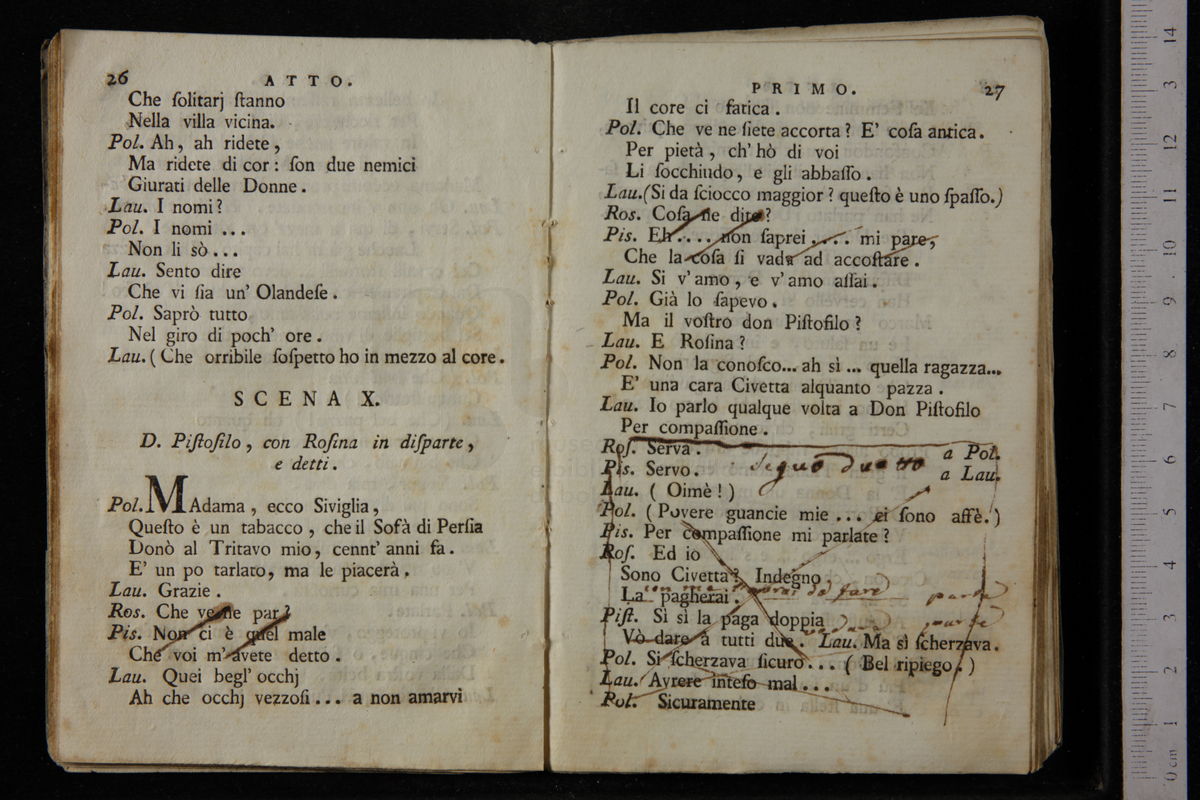 26 ATTO.
Che ſolitarj ſtanno
Nella villa vicina.
Pol. Ah, ah ridete,
Ma ridete di cor: ſon due nemici
Giurati delle Donne.
Lau. I nomi?
Pol. I nomi ...
Non li sò...
Lau. Sento dire
Che vi ſia un' Olandeſe.
Pol. Saprò tutto
Nel giro di poch' ore.
Lau. (Che orribile ſoſpetto ho in mezzo al core.
SCENA X.
D. Piſtofilo, con Roſina in diſparte,
e detti.
Pol. MAdama, ecco Siviglia,
Queſto è un tabacco, che il Sofà di Perſia
Donò al Tritavo mio, cennt' anni fa.
E' un po tarlato, ma le piacerà.
Lau. Grazie.
Ros. Che ve ne par?
Pis. Non ci è quel male
Che voi m'avete detto.
Lau. Quei begl' occhj
Ah che occhj vezzoſi ... a non amarvi
PRIMO. 27
Il core ci fatica.
Pol. Che ve ne ſiete accorta? E' coſa antica.
Per pietà, ch' hò di voi
Li ſocchiudo, e gli abbaſſo.
Lau. (Si da ſciocco maggior? queſto è uno ſpaſſo.)
Ros. Coſa ne dite?
Pis. Eh .... non ſaprei .... mi pare,
Che la coſa ſi vada ad accoſtare.
Lau. Si v'amo, e v'amo aſſai.
Pol. Già lo ſapevo.
Ma il voſtro don Piſtofilo?
Lau. E Roſina?
Pol. Non la conoſco... ah sì ... quella ragazza...
E' una cara Civetta alquanto pazza.
Lau. Io parlo qualque volta a Don Piſtofilo
Per compaſſione.
Roſ. Serva. a Pol.
Pis. Servo. Segue duetto a Lau.
Lau. (Oimè!)
Pol. (Povere guancie mie ... ci ſono affè.)
Pis. Per compaſſione mi parlate?
Roſ. Ed io
Sono Civetta? Indegno,
La pagherai. parte
Piſt. Si sì la paga doppia
Vò dare a tutti due. parte Lau. Ma sì ſcherzava.
Pol. Si ſcherzava ſicuro... (Bel ripiego.)
Lau. Avrere inteſo mal...
Pol. Sicuramente